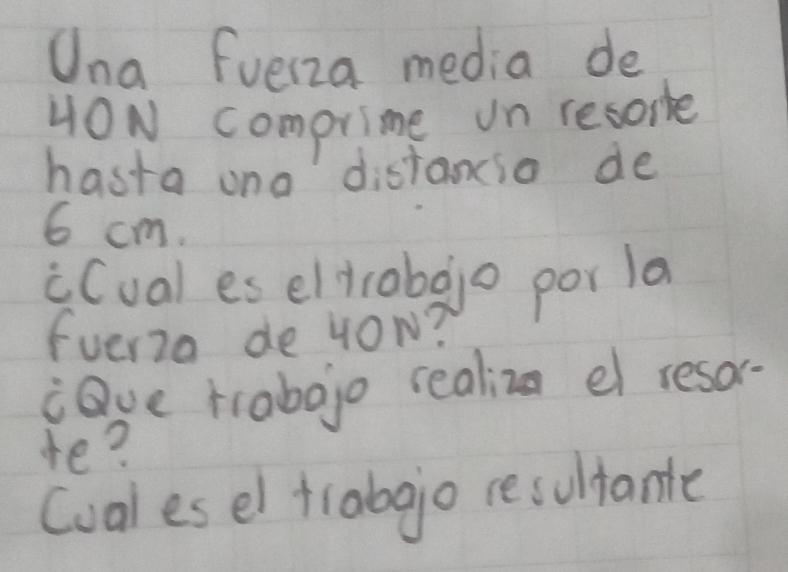 Una fuerza media de
40N comprime un resorte
hasta una distancia de
6 cm.
¿Cual es el trabajo por la
fuerza de 40N?
¿Que trabajo realiza el resor-
te?
Cual es el trabajo resultante